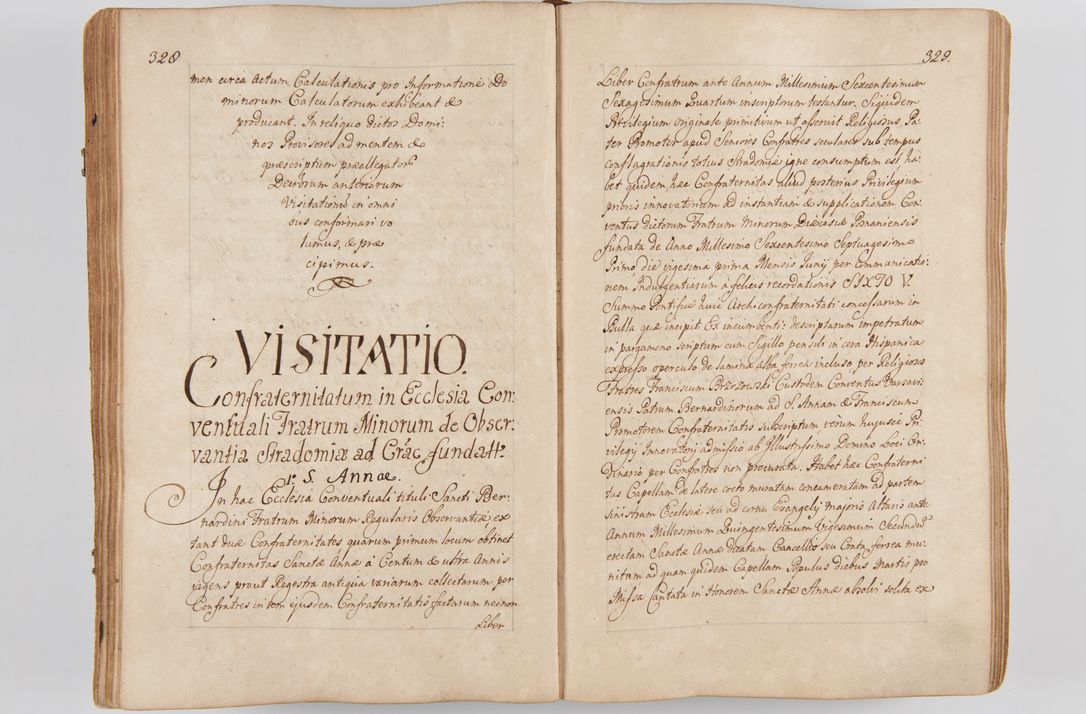 328
men circa Actum Calculationis pro Informatione Do
minorum Calculatorum exhibeant &
producant. In reliquo dictos Domi:
nos Provisores ad mentem &
præscriptum præallegator̃
Decretorum anteriorum
Visitationũ in omni
bus conformari vo
lumus, & præ
cipimus.
VISITATIO.
Confraternitatum in Ecclesia Con:
ventuali Fratrum Minorum de Obser:
vantia Stradomiæ ad Crac̃. fundatt:
1º S. Annæ.
In hac Ecclesia Conventuali tituli Sancti Ber:
nardini Fratrum Minorum Regularis Observantiæ, ex
tant duæ Confraternitates, quarum primum locum obtinet
Confraternitas Sanctæ Annæ à Centum & ultra Annis
vigens, prout Regestra antiqua variarum collectarum per
Confratres in rem ejusdem Confraternitatis factarum necnon
Liber
329.
Liber Confratrum ante Annum Millesimum Sexcentesimum
Sexagesimum Quartum inscriptorum testantur. Siquidem
Privilegium originale primitivum ut asseruit Religiosus Pa:
ter Promoter apud Seniores Confratres seculares sub tempus
conflagrationis totius Stradomiæ igne consumptum est ha
bet quidem hæc Confraternitas aliud posterius Privilegium
prioris innovatorium ad instantiam & supplicationem Con:
ventus dictorum Fratrum Minorum Diæcesis Posnaniensis
fundata de Anno Millesimo Sexcentesimo Septuagesimo
Primo die vigesima prima Mensis Junij per Communicatio:
nem Indulgentiarum a felicis recordationis SIXTO V.
Summo Pontifice huic Archiconfraternitati concessarum in
Bulla quæ incipit Ex incumbenti: descriptarum impetratum
in pargameno scriptum cum Sigillo pensili in cera Hispanica
expresso operculo de lamina alba ferea incluso, per Religiosũ
Fratrem Franciscum Brzozowski Custodem Conventus Varsavi:
ensis Patrum Bernardinorum ad S. Annam & Franciscum
Promotorem Confraternitatis subscriptum verùm hujusce Pri
vilegij Innovatorij admissio ab Illustrissimo Domino Loci Or:
dinario per Confratres non procurata. Habet hæc Confraterni
tas Capellam de latere cocto muratam concameratam ad partem
sinistram Ecclesiæ seu ad cornu Evangelij majoris Altaris ante
Annum Millesimum Quingentesimum Vigesimum Secundũ
erectam Sanctæ Annæ dicatam Cancellis seu Crata ferrea mu:
nitam ad quam quidem Capellam Populus diebus Martis pro
Missa Cantata in Honorem Sanctæ Annæ absolvi solita ex